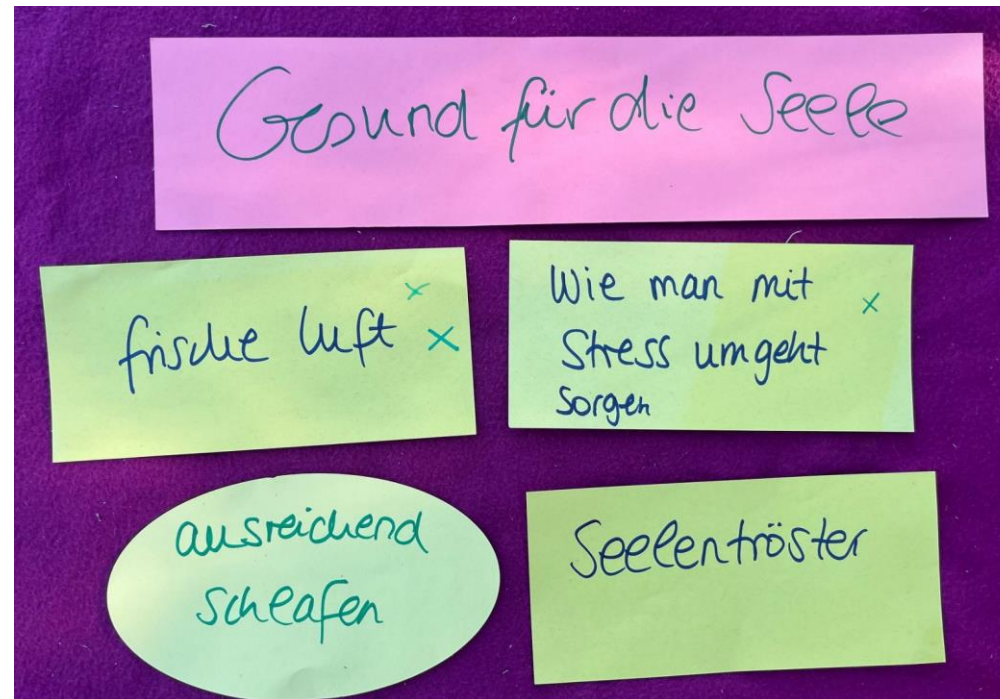 Gesund für die Seele
frische luft x x
Wie man mit x
Stress umgeht
Sorgen
ausreichend
schlafen
Seelentröster